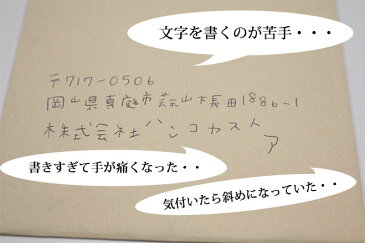 文字を書くのが苦手・・・
〒717-0506
岡山県真庭市蒜山下長田1886-1
株式会社ハンコカスト
ア
書きすぎて手が痛くなった・・
気付いたら斜めになっていた・・